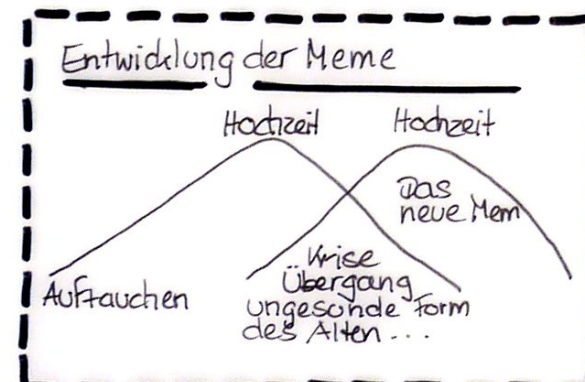 Entwicklung der Meme
Hochzeit
Hochzeit
Das
neue Mem
Auftauchen
Krise
Übergang
ungesunde Form
des Alten ...